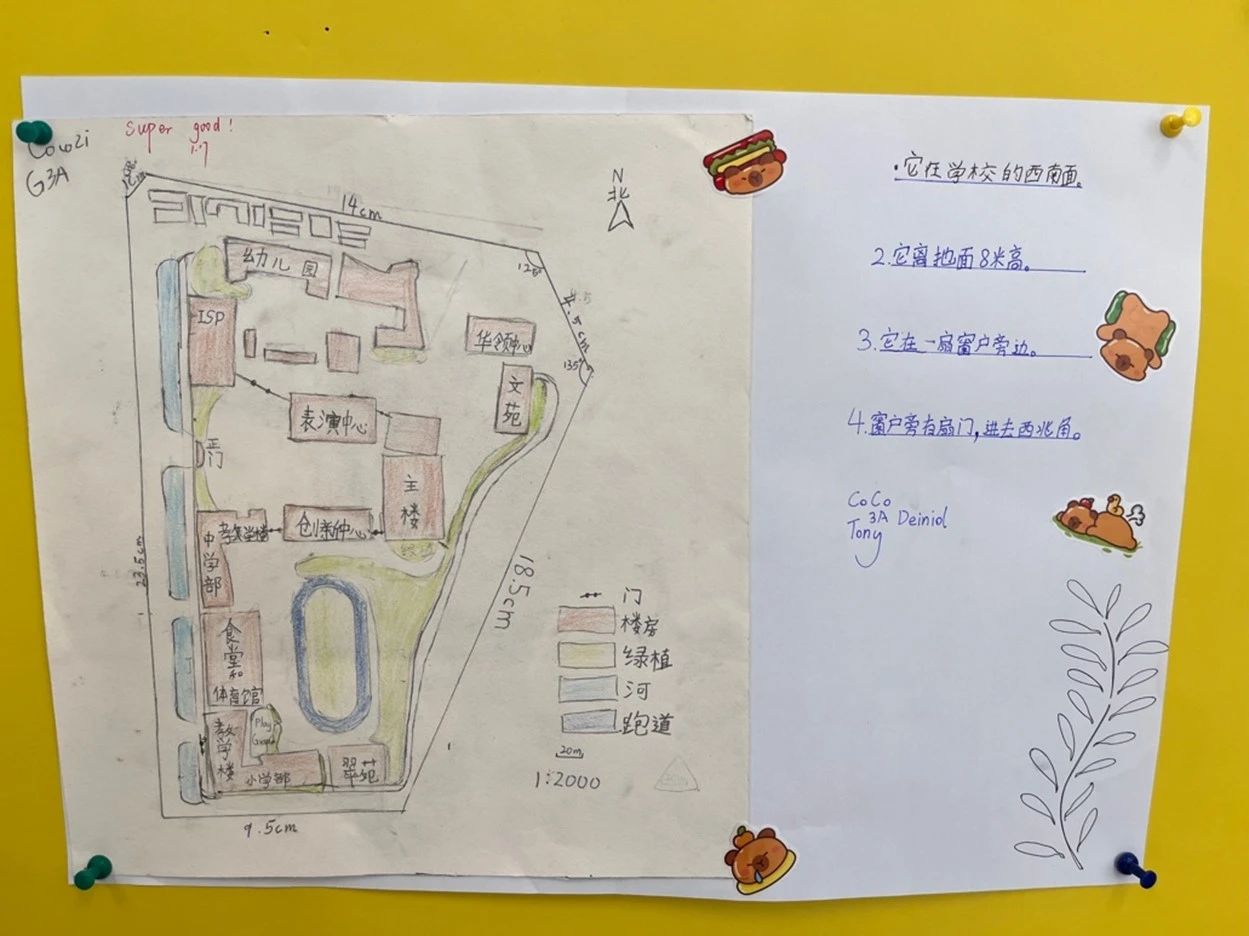 super good!
G3A
14cm
N
北
幼儿园
125°
4.5cm
135°
ISP
华领中心
文苑
表演中心
正门
主楼
创新中心
中学部
教学楼
23.5cm
18.5cm
食堂和
体育馆
教学楼
Play
小学部
翠苑
9.5cm
门
楼房
绿植
河
跑道
20m
1:2000
·它在学校的西南面。
2.它离地面8米高。
3.它在一扇窗户旁边。
4.窗户旁有扇门,进去西北角。
CoCo
3A Deiniol
Tony